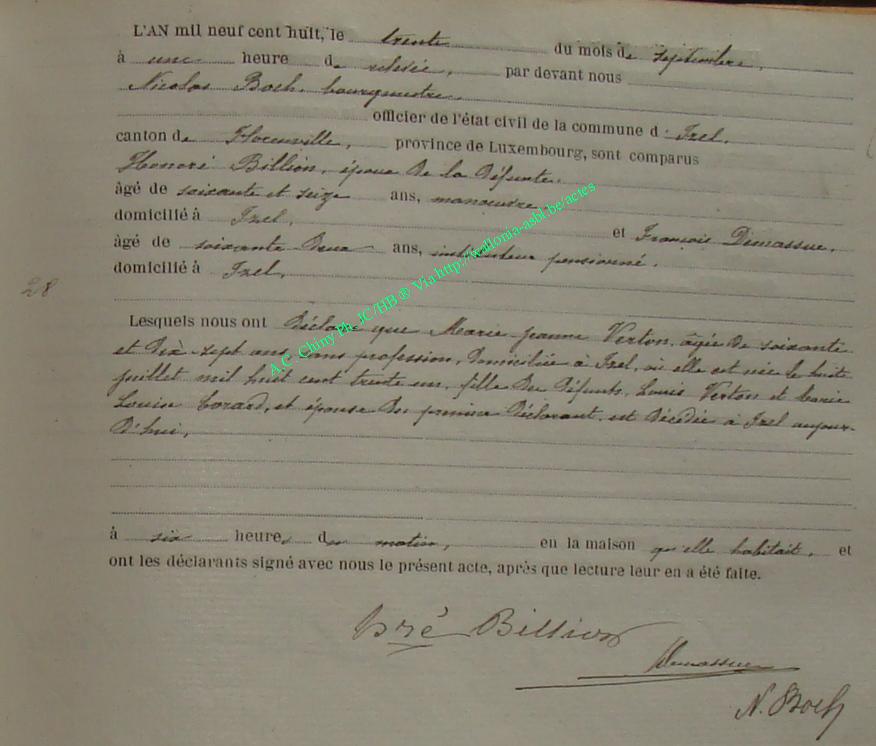 L'AN mil neuf cent huit, le trente du mois de septembre,
à une heure de relevée, par devant nous
Nicolas Boch, bourgmestre,
officier de l'état civil de la commune d'Izel,
canton de Florenville, province de Luxembourg, sont comparus
Honoré Billion, époux de la défunte,
âgé de soixante et seize ans, manœuvre
domicilié à Izel, et François Demassue,
âgé de soixante deux ans, instituteur pensionné,
domicilié à Izel,
28
Lesquels nous ont déclaré que Marie Jeanne Verton, âgée de soixante
et dix-sept ans, sans profession, domiciliée à Izel, où elle est née le huit
juillet mil huit cent trente un, fille des défunts, Louis Verton et Marie
Louise, et épouse du premier déclarant, est décédée à Izel aujour-
d'hui,
à six heures du matin, en la maison qu'elle habitait, et
ont les déclarants signé avec nous le présent acte, après que lecture leur en a été faite.
Billion
Demassue
N. Boch
A.C. Chiny Ph. JC/HB ® Via http://wallonia-asbl.be/actes